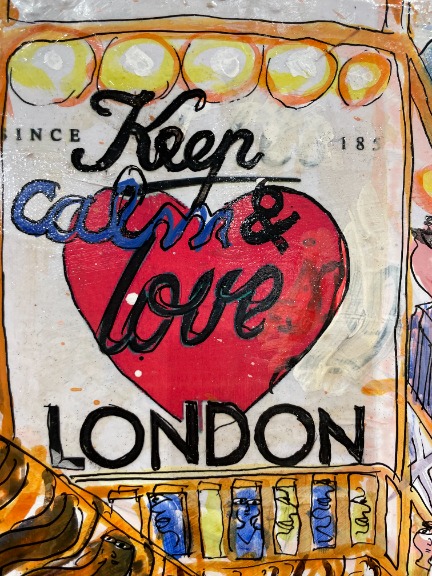 SINCE 185
Keep
calm &
love
LONDON